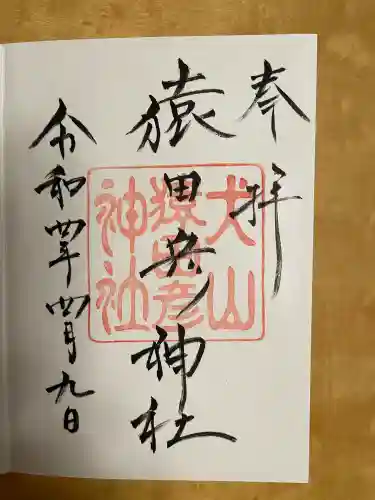 奉拝
猿田彦神社
令和四年四月九日
犬山
猿田彦
神社